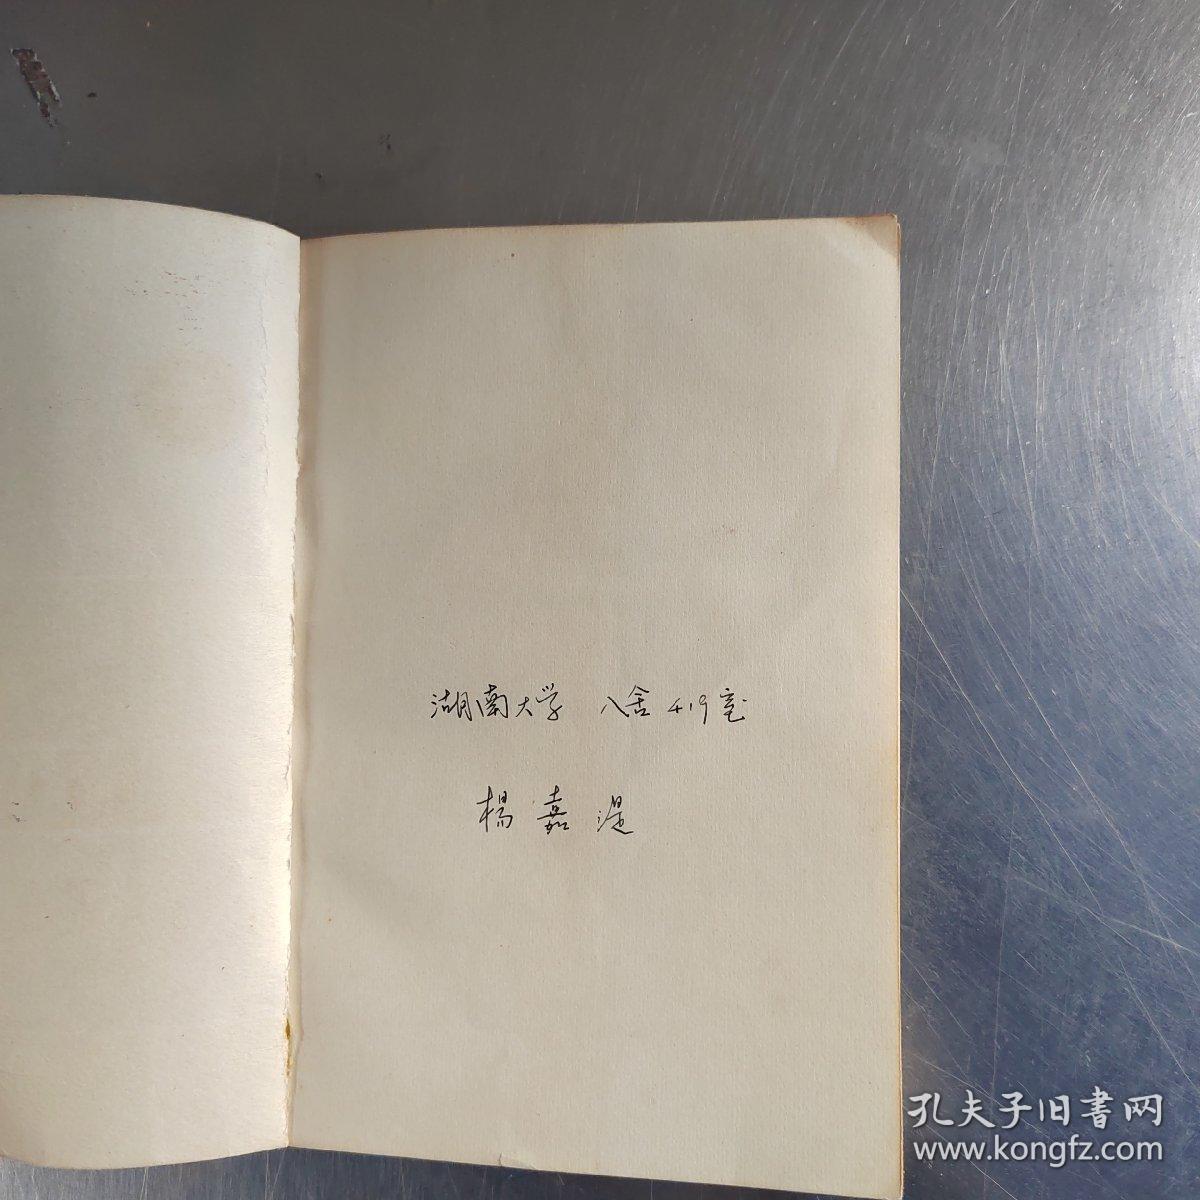 湖南大学 八舍419室
楊嘉湜
孔夫子旧書网
www.kongfz.com